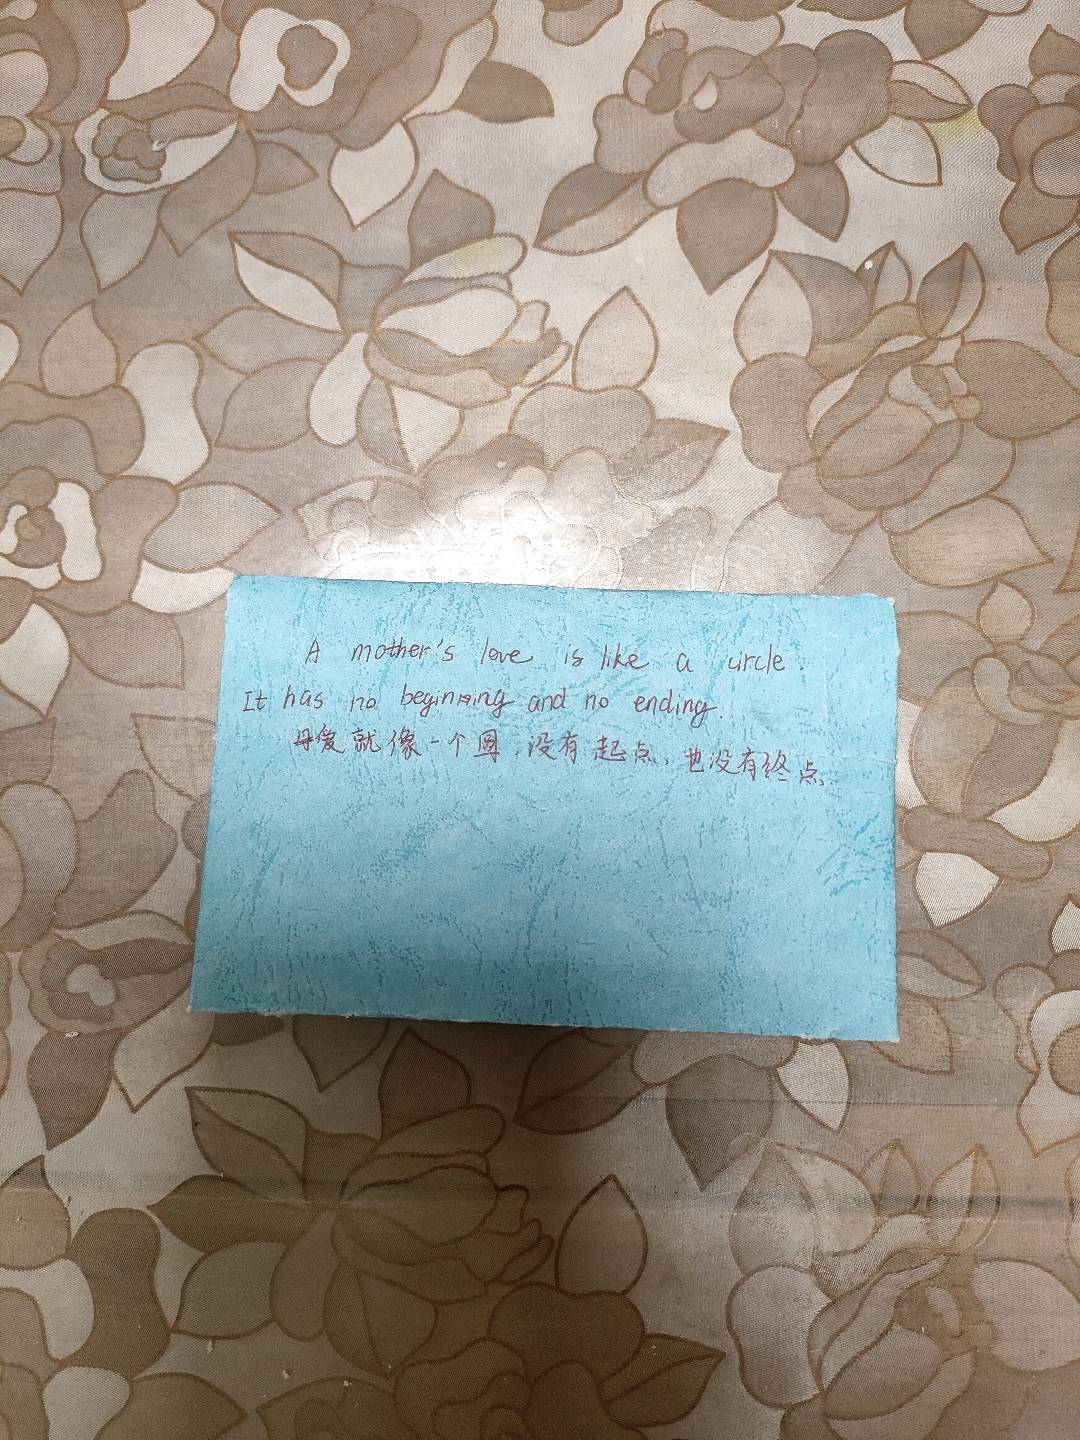 A mother's love is like a circle.
It has no beginning and no ending.
母爱就像一个圆,没有起点,也没有终点.